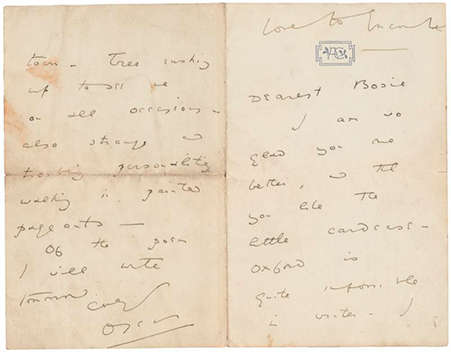 Love to Encombe
Dearest Bosie
I am so
glad you are
better, and that
you like the
little card case -
Oxford is
quite impossible
in winter. I
town - Tree rushing
up to see me
on all occasions -
also strange and
troubling personalities
walking in painted
pageants -
Of the poem
I will write
tomorrow.
Oscar